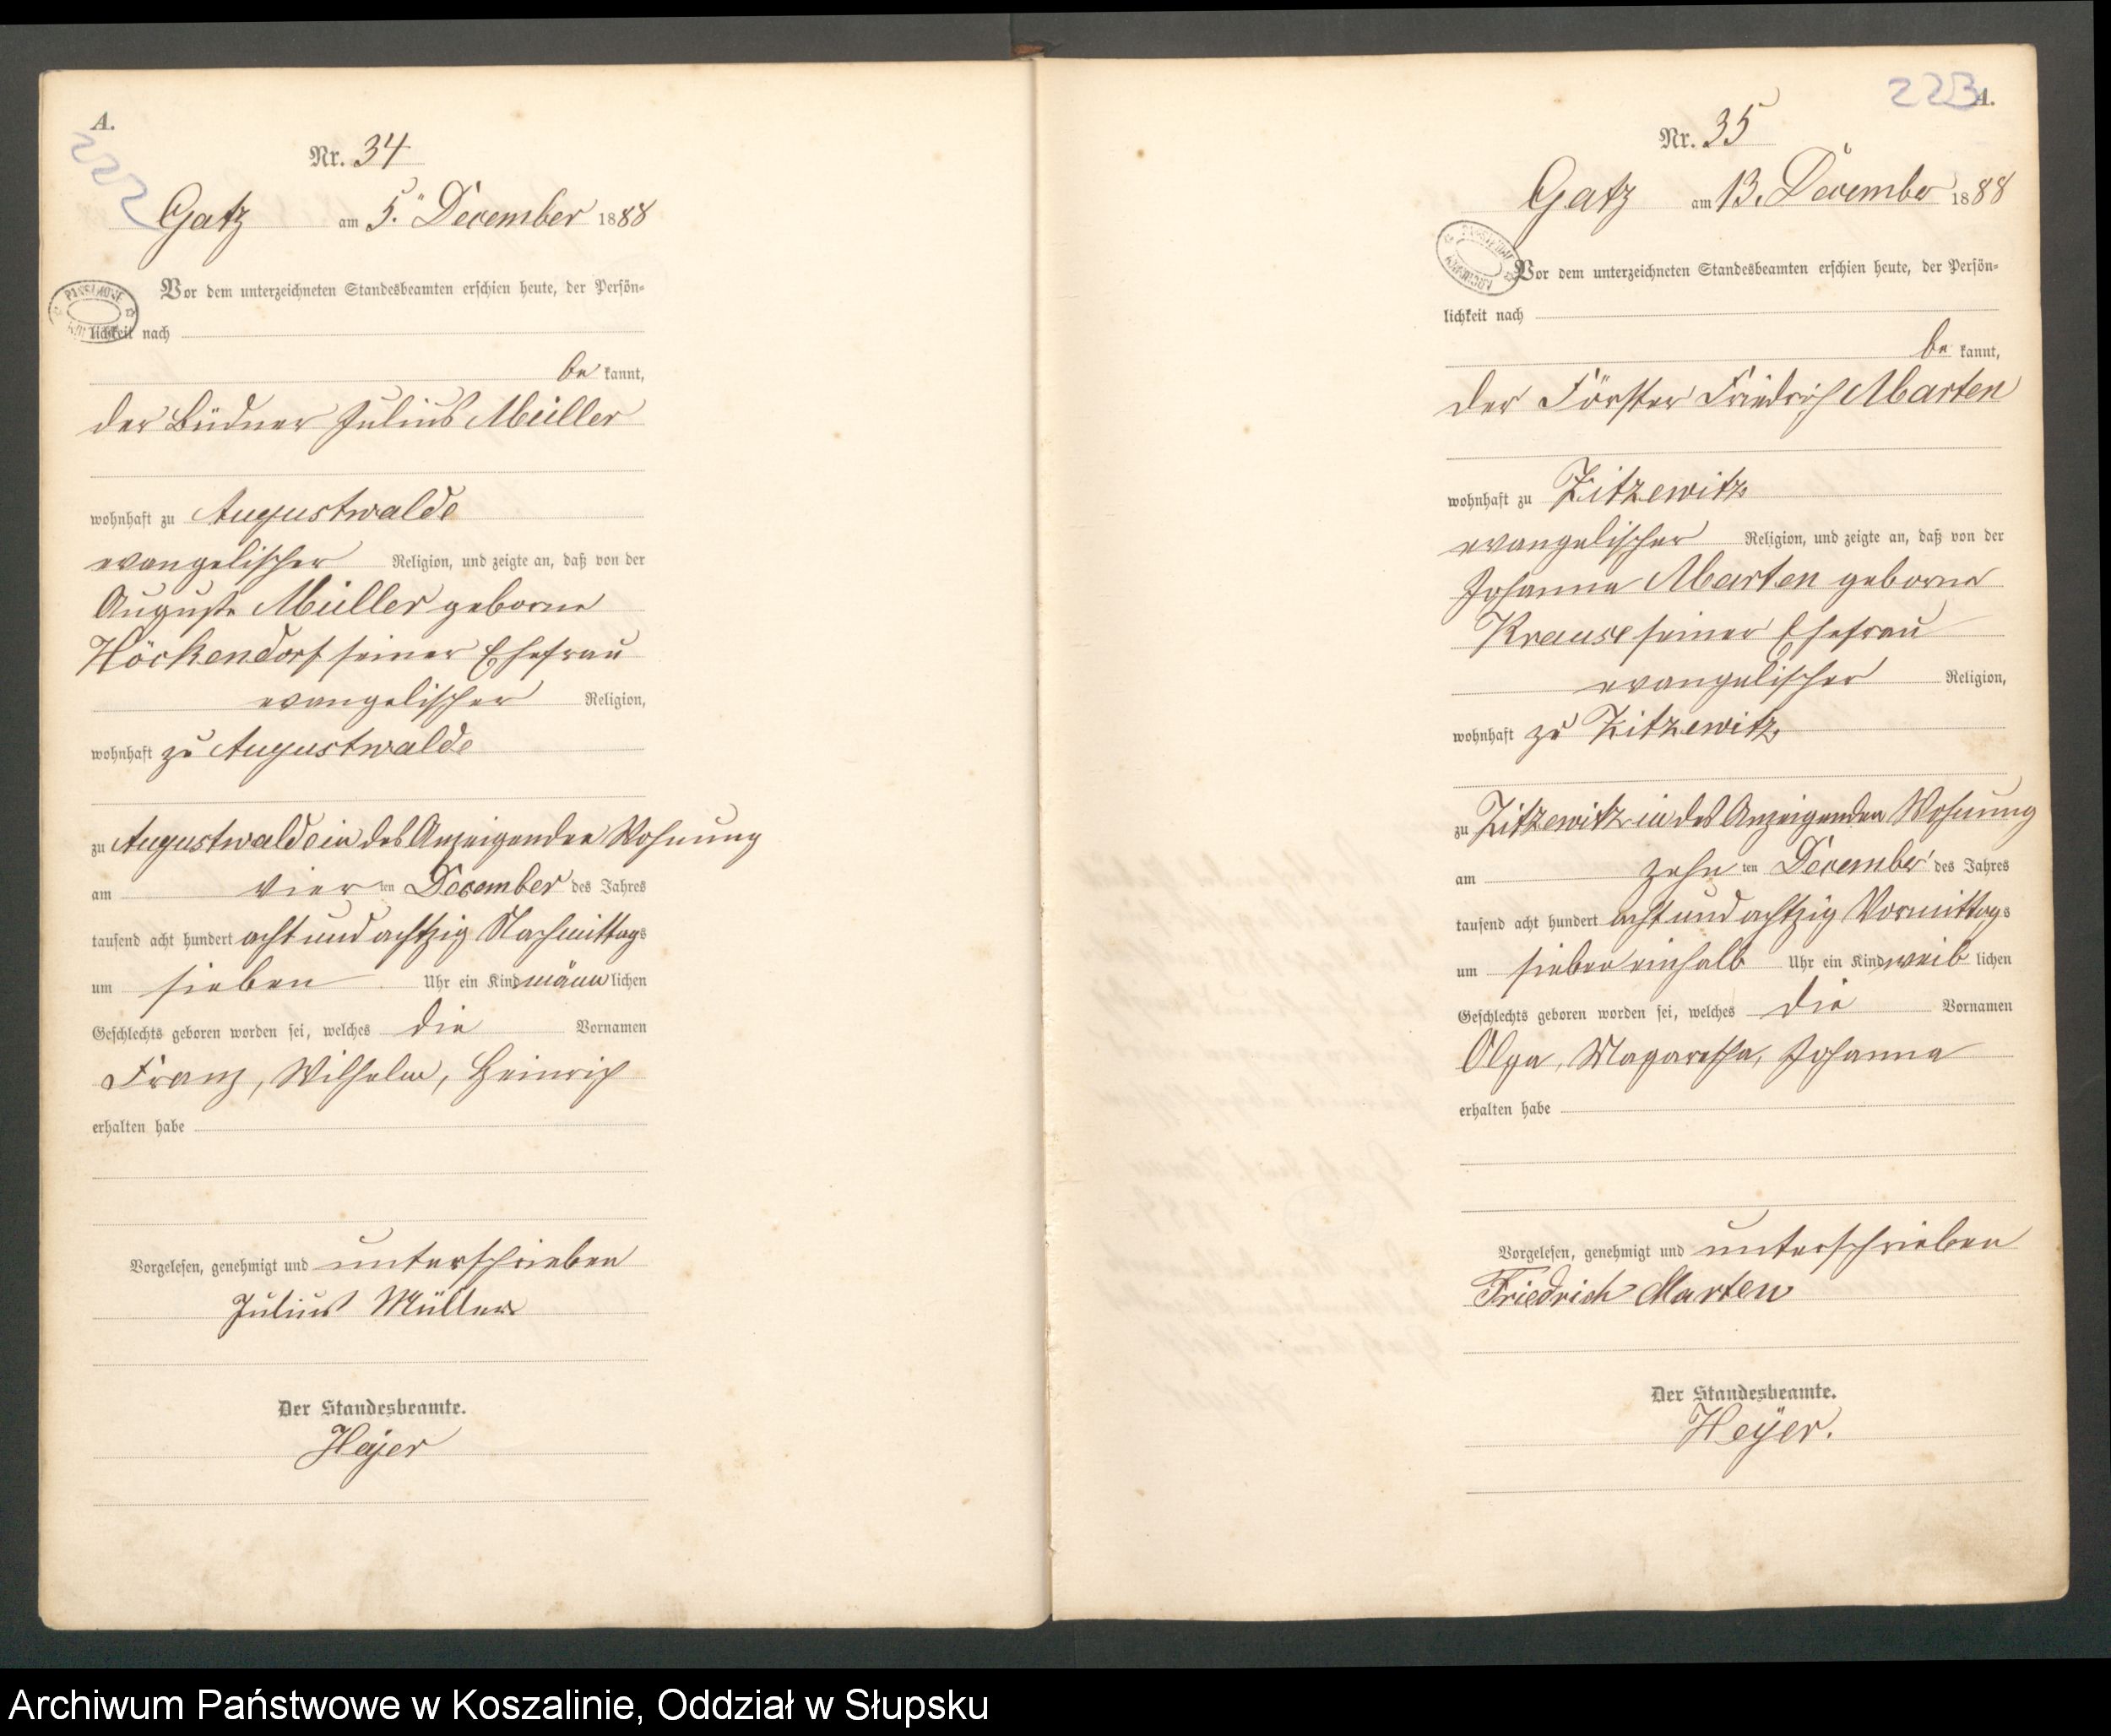 A.
222
Nr. 34
Gatz am 5. December 1888
Vor dem unterzeichneten Standesbeamten erschien heute, der Persön-
lichkeit nach
be kannt,
der Büdner Julius Müller
wohnhaft zu Augustwalde
evangelischer Religion, und zeigte an, daß von der
Auguste Müller geborne
Höckendorf seiner Ehefrau
evangelischer Religion,
wohnhaft zu Augustwalde
zu Augustwalde in des Anzeigenden Wohnung
am vier ten December des Jahres
tausend acht hundert acht und achtzig Nachmittags
um sieben Uhr ein Kind männ lichen
Geschlechts geboren worden sei, welches die Vornamen
Franz, Wilhelm, Heinrich
erhalten habe
Vorgelesen, genehmigt und unterschrieben
Julius Müller
Der Standesbeamte.
Heyer
223
A.
Nr. 35
Gatz am 13. December 1888
Vor dem unterzeichneten Standesbeamten erschien heute, der Persön-
lichkeit nach
be kannt,
der Förster Friedrich Marten
wohnhaft zu Zitzewitz
evangelischer Religion, und zeigte an, daß von der
Johanna Marten geborne
Krause seiner Ehefrau
evangelischer Religion,
wohnhaft zu Zitzewitz
zu Zitzewitz in des Anzeigenden Wohnung
am zehn ten December des Jahres
tausend acht hundert acht und achtzig Vormittags
um sieben einhalb Uhr ein Kind weib lichen
Geschlechts geboren worden sei, welches die Vornamen
Olga, Magaretha, Johanna
erhalten habe
Vorgelesen, genehmigt und unterschrieben
Friedrich Marten
Der Standesbeamte.
Heyer.
Archiwum Państwowe w Koszalinie, Oddział w Słupsku